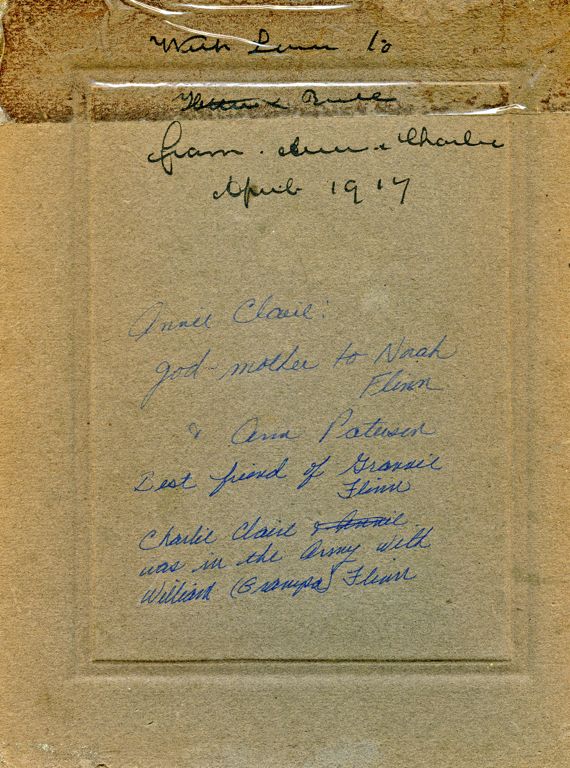 With Love to
from. Ann & Charlie
April 1917
Annie Claire:
god-mother to Norah
Flinn
& Ann Patersen
Best friend of Grannie
Flinn
Charlie Claire & Annie
was in the Army with
William (Grampa) Flinn